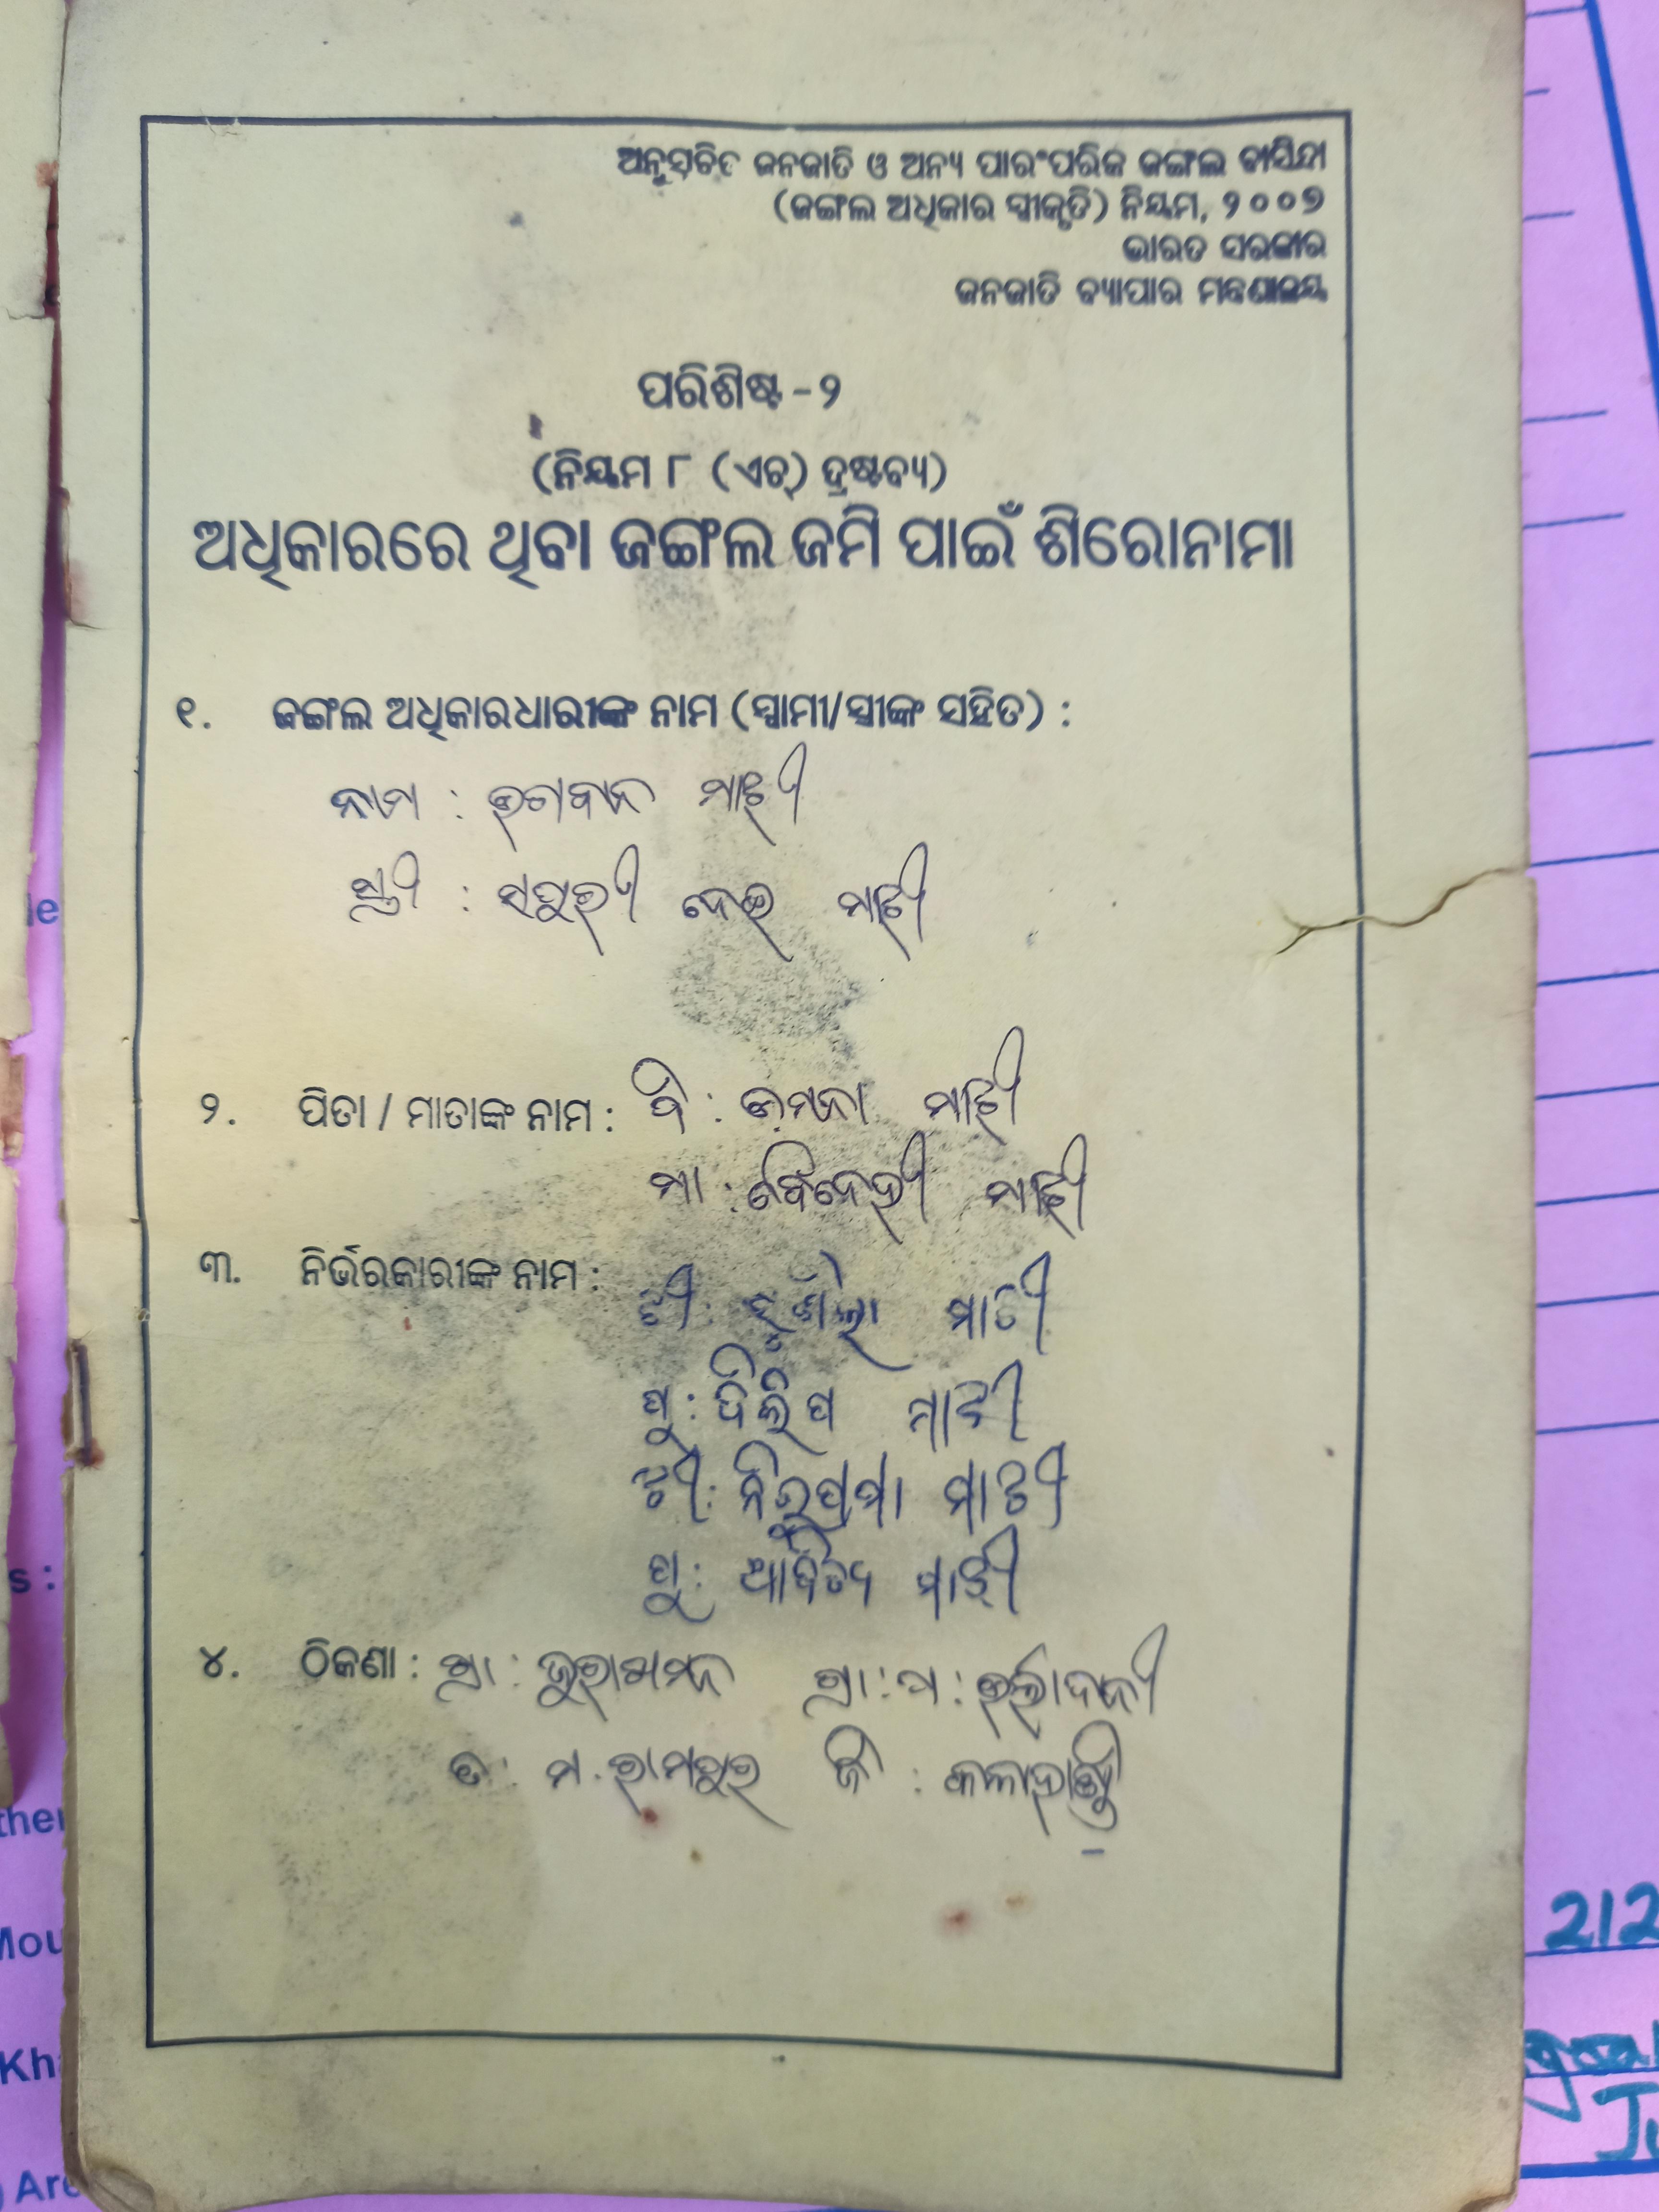 ଅନୁସୂଚିତ ଜନଜାତି ଓ ଅନ୍ୟ ପାରଂପରିକ ଜଙ୍ଗଲ ବାସିନ୍ଦା
(ଜଙ୍ଗଲ ଅଧିକାର ସ୍ୱୀକୃତି) ନିୟମ, ୨୦୦୭
ଭାରତ ସରକାର
ଜନଜାତି ବ୍ୟାପାର ମନ୍ତ୍ରଣାଳୟ
ପରିଶିଷ୍ଟ-୨
(ନିୟମ ୮ (ଏଚ୍) ଦ୍ରଷ୍ଟବ୍ୟ)
ଅଧିକାରରେ ଥିବା ଜଙ୍ଗଲ ଜମି ପାଇଁ ଶିରୋନାମା
୧. ଜଙ୍ଗଲ ଅଧିକାରଧାରୀଙ୍କ ନାମ (ସ୍ୱାମୀ/ସ୍ତ୍ରୀଙ୍କ ସହିତ) :
ନାମ : ଭଗବାନ ମାଝୀ
ସ୍ତ୍ରୀ : ସପୁରୀ ଦେଇ ମାଝୀ
୨. ପିତା / ମାତାଙ୍କ ନାମ : ପି : ମାଝୀ
ମା : ମାଝୀ
୩. ନିର୍ଭରକାରୀଙ୍କ ନାମ :
ଝୀ : ମାଝୀ
ପୁ : ଦିଲିପ ମାଝୀ
ଝୀ : ନିରୁପମା ମାଝୀ
ପୁ : ଆଦିତ୍ୟ ମାଝୀ
୪. ଠିକଣା : ଗ୍ରା : ଗ୍ରା : ପ :
ତ : ମ. ରାମପୁର ଜି : କଳାହାଣ୍ଡି
212